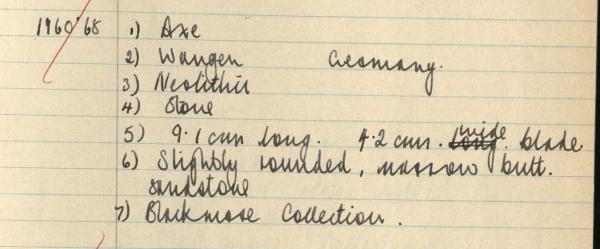 1960'68 1) Axe
2) Wangen Germany.
3) Neolithic
4) Stone
5) 9.1 cms long. 4.2 cms. wide blade
6) Slightly rounded, narrow butt.
sandstone
7) Blackmore Collection.